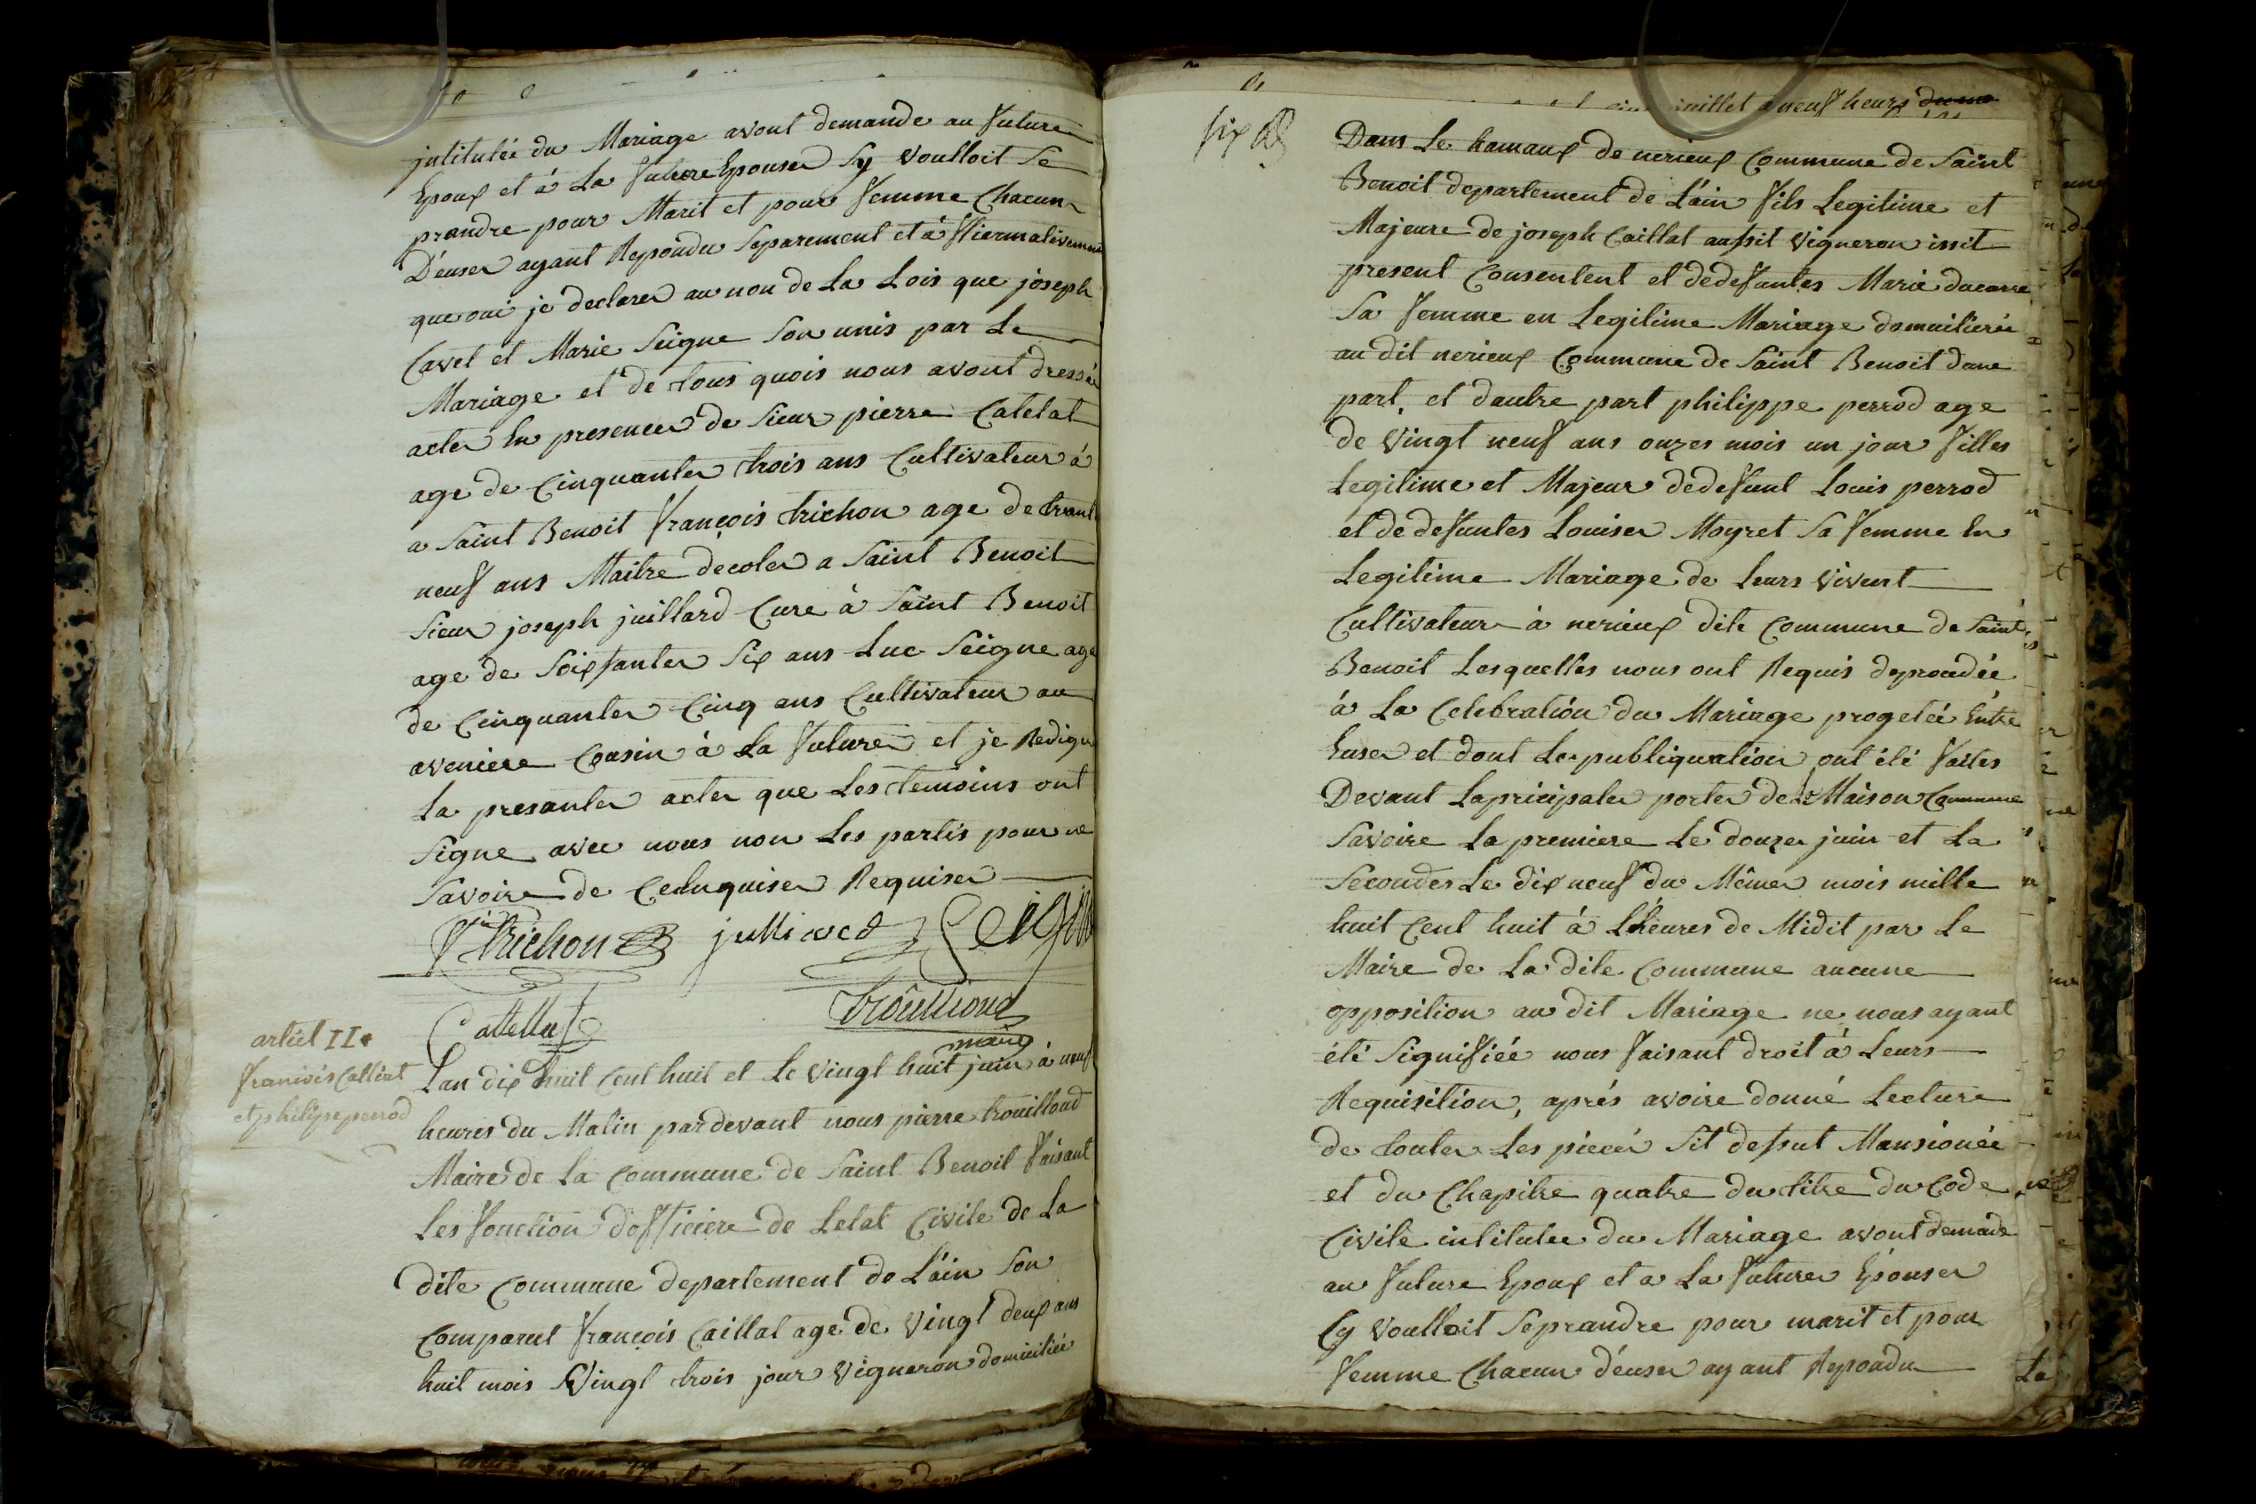 jntitulée du Mariage avont demande au future
Epoux et á La future Epouser Sy voulloit Se
prandre pour Marit et pour femme Chacun
D'euser ayant Repondu Separement et á ffiermativemen
que oui je declarer au non de La Lois que joseph
Cavet et Marie Seigne Son unis par Le
Mariage et de tous quois nous avont dressée
acter En presencer de Sieur pierre Catelat
age de Cinquanter trois ans Cultivateur á
a Saint Benoit françois trichon age de trant
neuf ans Maitre decoler a Saint Benoit
Sieur joseph juillard Cure à Saint Benoit
age de Soixsanter Six ans Luc Seigne age
de Cinquanter Cinq ans Cultivateur au
aveniere Cousin à La futurer et je Redigu
La presanter acter que Les temoins ont
Signe avec nous non Les partis pour ne
Savoire de Requiser
trichon julliard Seigne
Cattellat trôulliond
maire
artiel II.
françois Calliat
et philipe perrod
Lan dix huit Cent huit et Le vingt huit juin à neuf
heures du Matin pardevant nous pierre trouilloud
Maire de La Commune de Saint Benoit faisant
Les fonction d'officiere de Letat Civile de La
dite Commune departement de L'ain Son
Comparut françois Caillat age de vingt deux ans
huit mois vingt trois jour vigneron domiciliée
juillet a neuf heurs
six
Dans Le hamaux de nerieux Commune de Saint
Benoit departement de L'ain fils Legitime et
Majeure de joseph Caillat aussit vigneron issit
present Consentent et dedefantes Marie ducarre
Sa femme en Legitime Mariage domicilierée
au dit nerieux Commune de Saint Benoit dune
part, et dautre part philippe perrod age
de vingt neuf ans onzes mois un jour filles
Legitime et Majeur dedefunt Louis perrod
et de defuntes Louiser Moyret Sa femme En
Legitime Mariage de Leurs vivent
Cultivateur à nerieux dite Commune de Saint
Benoit Lesquelles nous ont Requis deproudée
á La Celebration du Mariage progetée Entre
Euser et dont Le publiquation ont été faites
Devant La pricipaler porter de La Maison Commune
Savoire La premiere Le douzer juin et La
Seconder Le dix neuf du Mêmer mois mille
huit Cent huit à L'heures de Midit par Le
Maire de La dite Commune aucune
opposition au dit Mariage ne nous ayant
été Signifiée nous faisant droit á Leurs
Requisition, aprés avoire donné Lecture
de touter Les piecér Sit desut Mansionée
et du Chapitre quatre du titre du Code
Civile intitulee du Mariage avont demade
au future Epoux et a La futurer Epouser
Cy voulloit Seprandre pour marit et pour
femme Chacun d'euser ayant Repondu